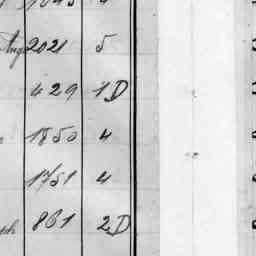 2021 5
429 1D
1850 4
1751 4
861 2D